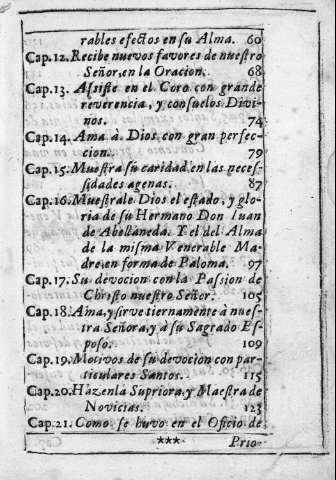 rables efectos en su Alma. 60
Cap.12. Recibe nuevos favores de nuestro
Señor, en la Oracion. 68
Cap.13. Assiste en el Coro con grande
reverencia, y consuelos Divi-
nos. 74
Cap.14. Ama à Dios con gran perfec-
cion. 79
Cap.15. Muestra su caridad en las neces-
sidades agenas. 87
Cap.16. Muestrale Dios el estado, y glo-
ria de su Hermano Don Iuan
de Abellaneda. Y el del Alma
de la misma Venerable Ma-
dre, en forma de Paloma. 97
Cap.17. Su devocion con la Passion de
Christo nuestro Señor. 105
Cap.18. Ama, y sirve tiernamente à nues-
tra Señora, y à su Sagrado Es-
poso. 109
Cap.19. Motivos de su devocion con par-
ticulares Santos. 115
Cap.20. Hazenla Supriora, y Maestra de
Novicias. 123
Cap.21. Como se huvo en el Oficio de
*** Prio-